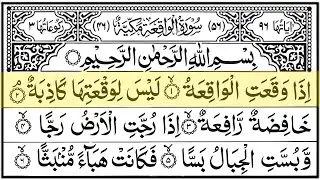 اٰیَاتُهَا ٩٦ (٥٦) سُوْرَةُ الْوَاقِعَةِ مَكِّیَّةٌ (٤٦) رُكُوْعَاتُهَا ٣
بِسْمِ اللّٰهِ الرَّحْمٰنِ الرَّحِیْمِ
اِذَا وَقَعَتِ الْوَاقِعَةُ ۙ﴿١﴾ لَیْسَ لِوَقْعَتِهَا كَاذِبَةٌ ۘ﴿٢﴾
خَافِضَةٌ رَّافِعَةٌ ۙ﴿٣﴾ اِذَا رُجَّتِ الْاَرْضُ رَجًّا ۙ﴿٤﴾
وَّبُسَّتِ الْجِبَالُ بَسًّا ۙ﴿٥﴾ فَكَانَتْ هَبَآءً مُّنْۢبَثًّا ۙ﴿٦﴾